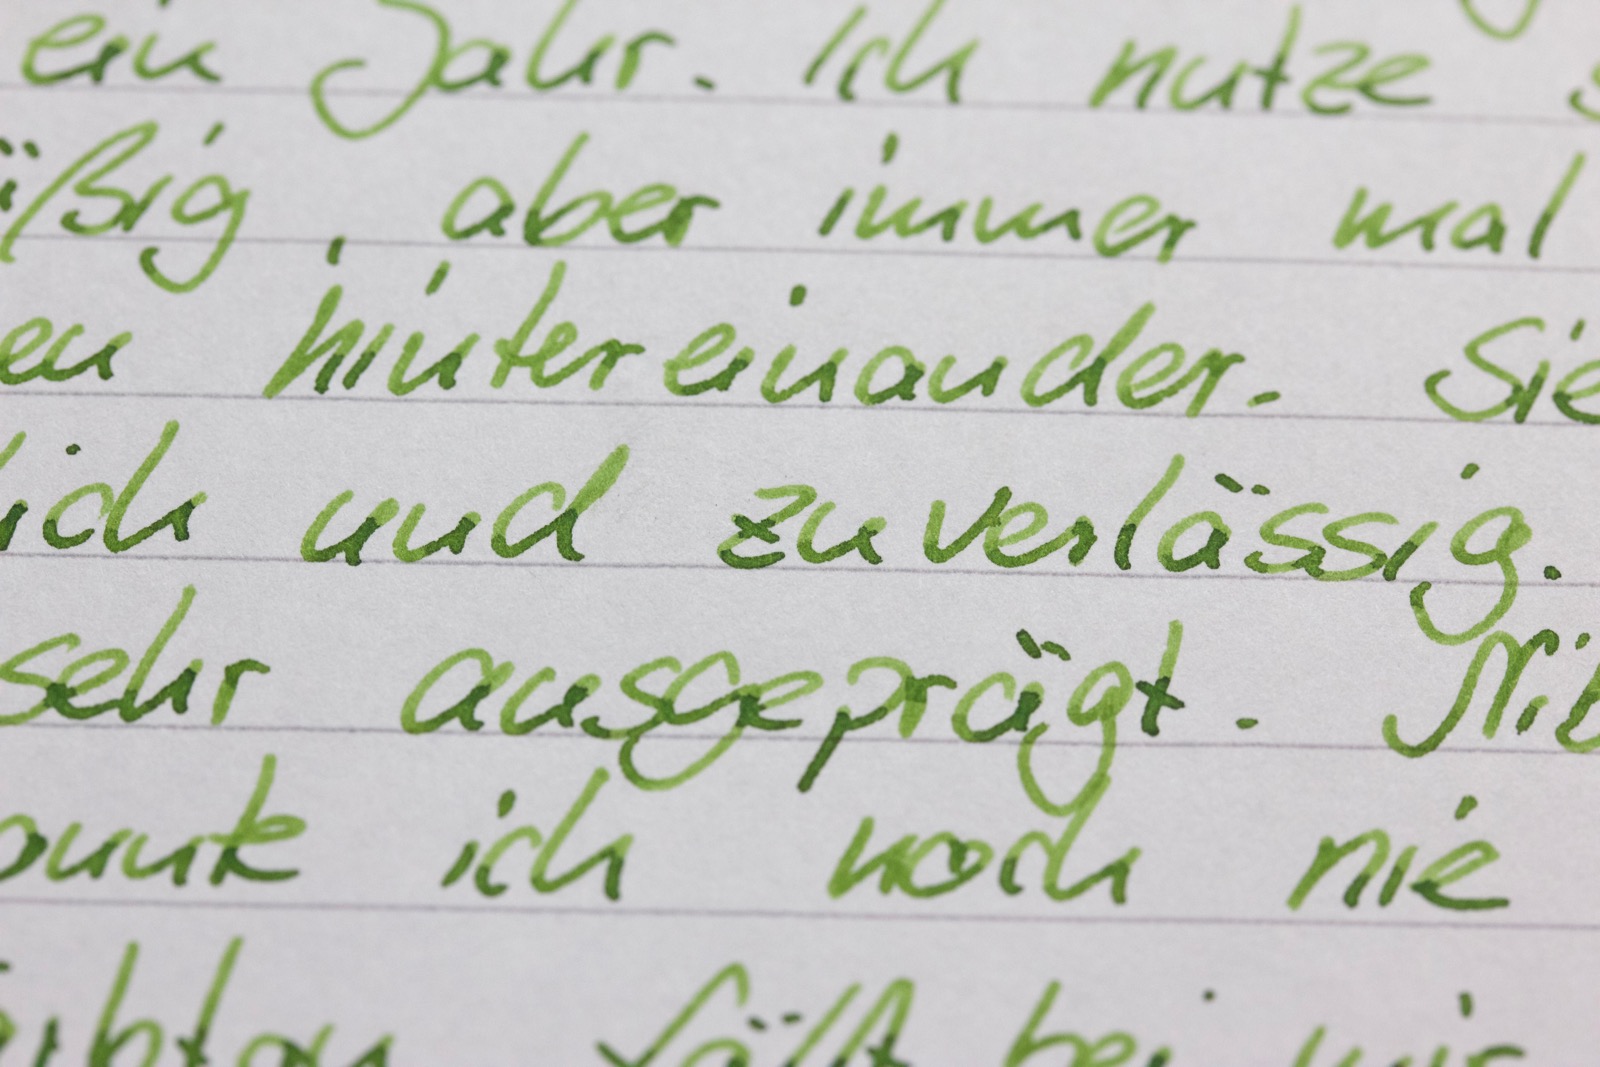 ein Jahr. Ich nutze s
äßig, aber immer mal
en hintereinander. Sie
lich und zuverlässig.
sehr ausgeprägt. Nib
onnte ich noch nie
fällt bei mir